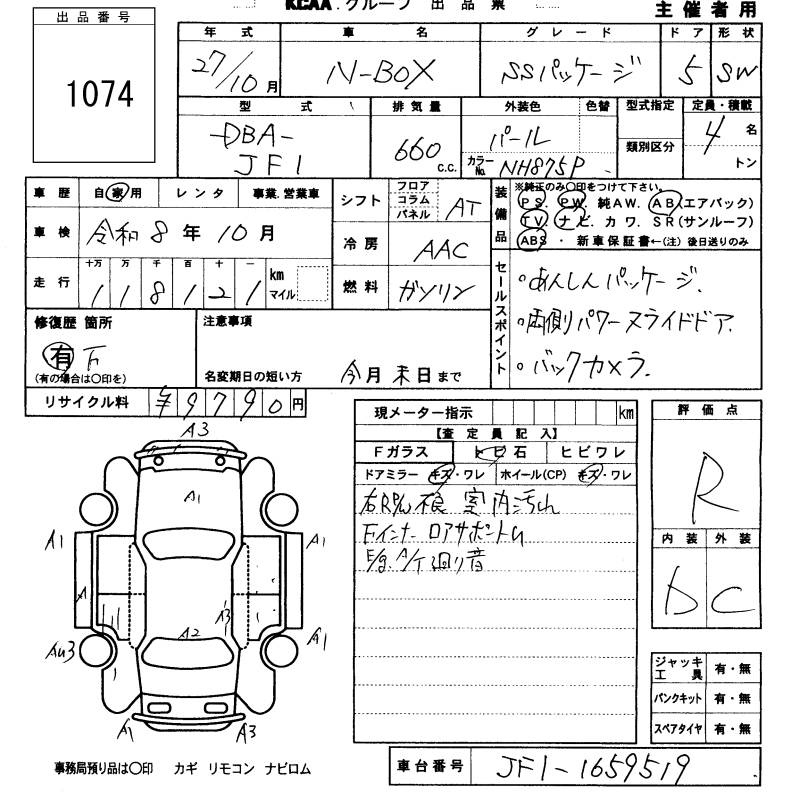 KCAA.グループ 出品票
主催者用
出品番号
1074
年式 車名 グレード ドア 形状
27/10月 N-BOX SSパッケージ 5 SW
型式 排気量 外装色 色替 型式指定 定員・積載
DBA-
JF1
660 c.c.
パール
カラーNo. NH875P
類別区分
4名
トン
車歴 自家用 レンタ 事業.営業車
車検 令和8年10月
走行 十万 万 千 百 十 一
118121 km マイル
シフト フロア コラム パネル AT
冷房 AAC
燃料 ガソリン
装備品
※純正のみ〇印をつけて下さい。
PS. PW. 純AW. AB(エアバック)
TV. ナビ. カワ. SR(サンルーフ)
ABS ・ 新車保証書←(注) 後日送りのみ
セールスポイント
・あんしんパッケージ.
・両側パワースライドドア.
・バックカメラ.
修復歴 箇所
有
(有の場合は〇印を)
注意事項
名変期日の短い方 今月末日まで
リサイクル料 ¥9790円
現メーター指示 km
【査定員記入】
Fガラス トビ石 ヒビワレ
ドアミラー キズ・ワレ ホイール(CP) キズ・ワレ
室内汚れ
Fインナー ロアサポートム
E/g. A/T 廻り音
評価点
R
内装 外装
D C
ジャッキ工具 有・無
パンクキット 有・無
スペアタイヤ 有・無
A3
A1
A1 A1
A
A3
A2
A1
A1 A3
事務局預り品は〇印 カギ リモコン ナビロム
車台番号 JF1-1659519